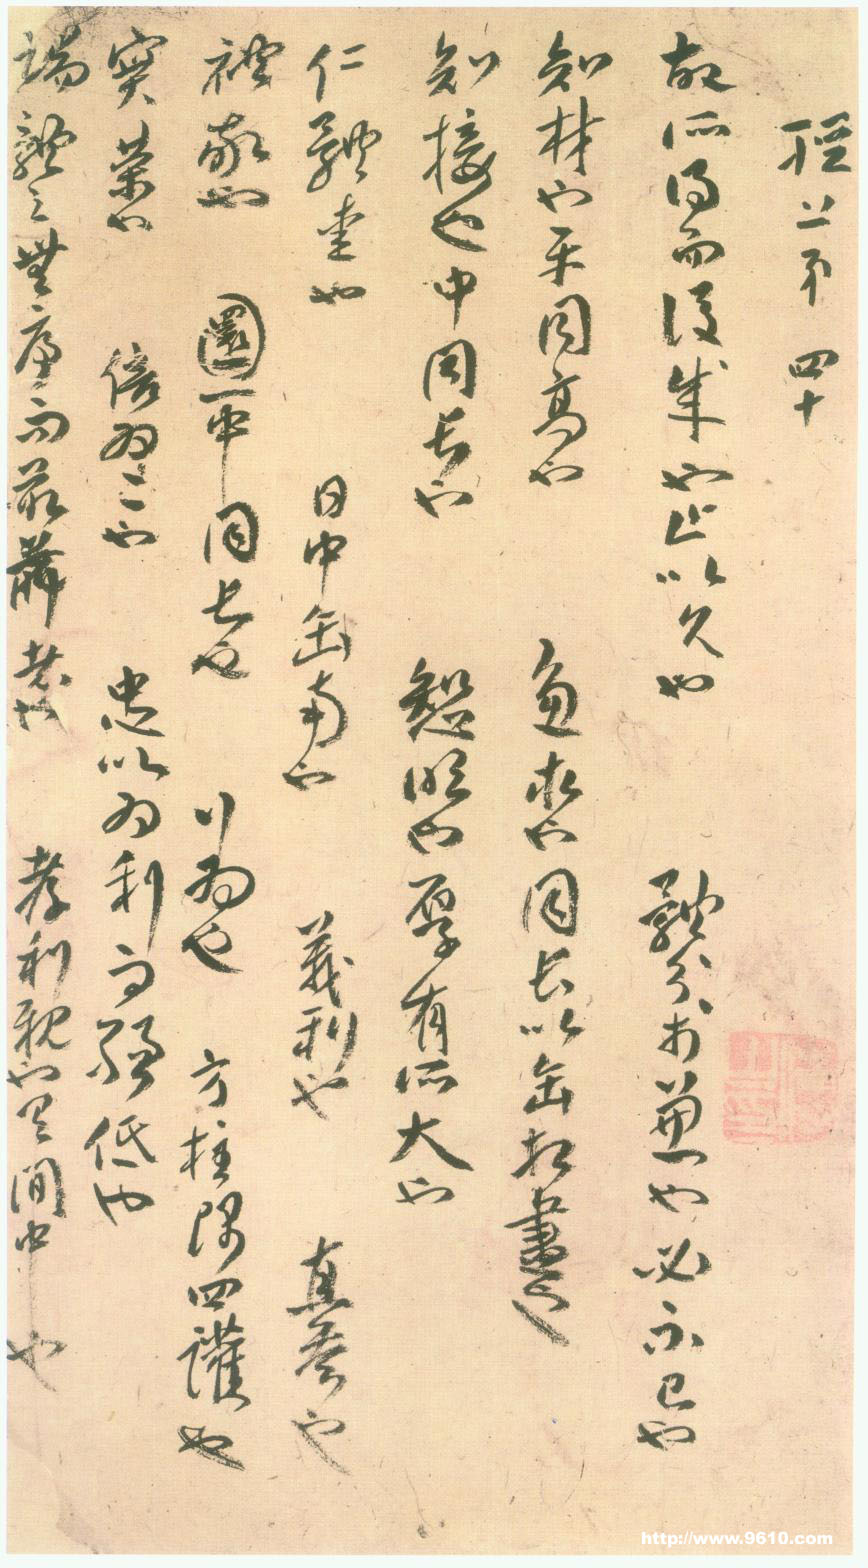 經上第四十
故所得而後成也止以久也 體分於兼也必不已也
知材也平同高也 慮求也同長以缶相盡也
知接也中同長也 恕明也厚有所大也
仁體愛也 日中缶南也 義利也 直參也
禮敬也 圜一中同長也 行為也 方柱隅四讙也
實榮也 倍為二也 忠以為利而強低也
端體之無序而最前者也 孝利親也有間中也
http://www.9610.com